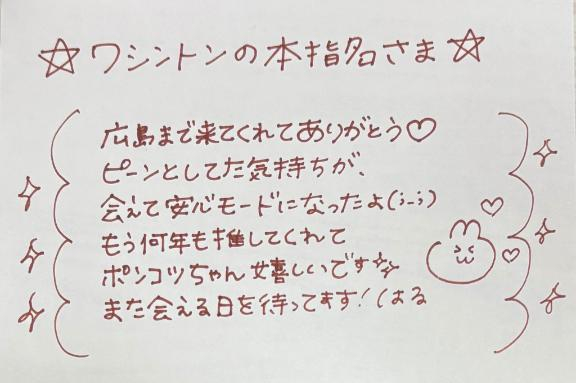 ☆ワシントンの本指名さま☆
広島まで来てくれてありがとう♡
ピーンとしてた気持ちが、
会えて安心モードになったよ(;-;)
もう何年も推してくれて
ポンコツちゃん嬉しいです
また会える日を待ってます!はる